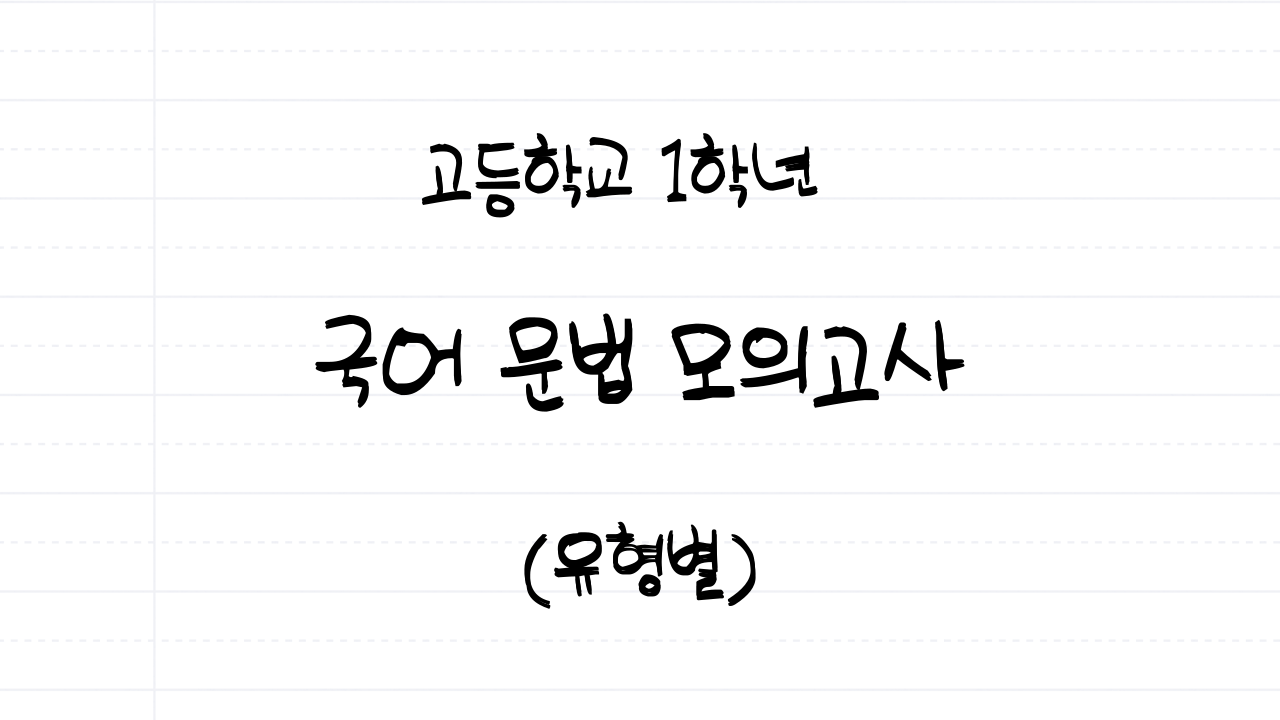 고등학교 1학년
국어 문법 모의고사
(유형별)